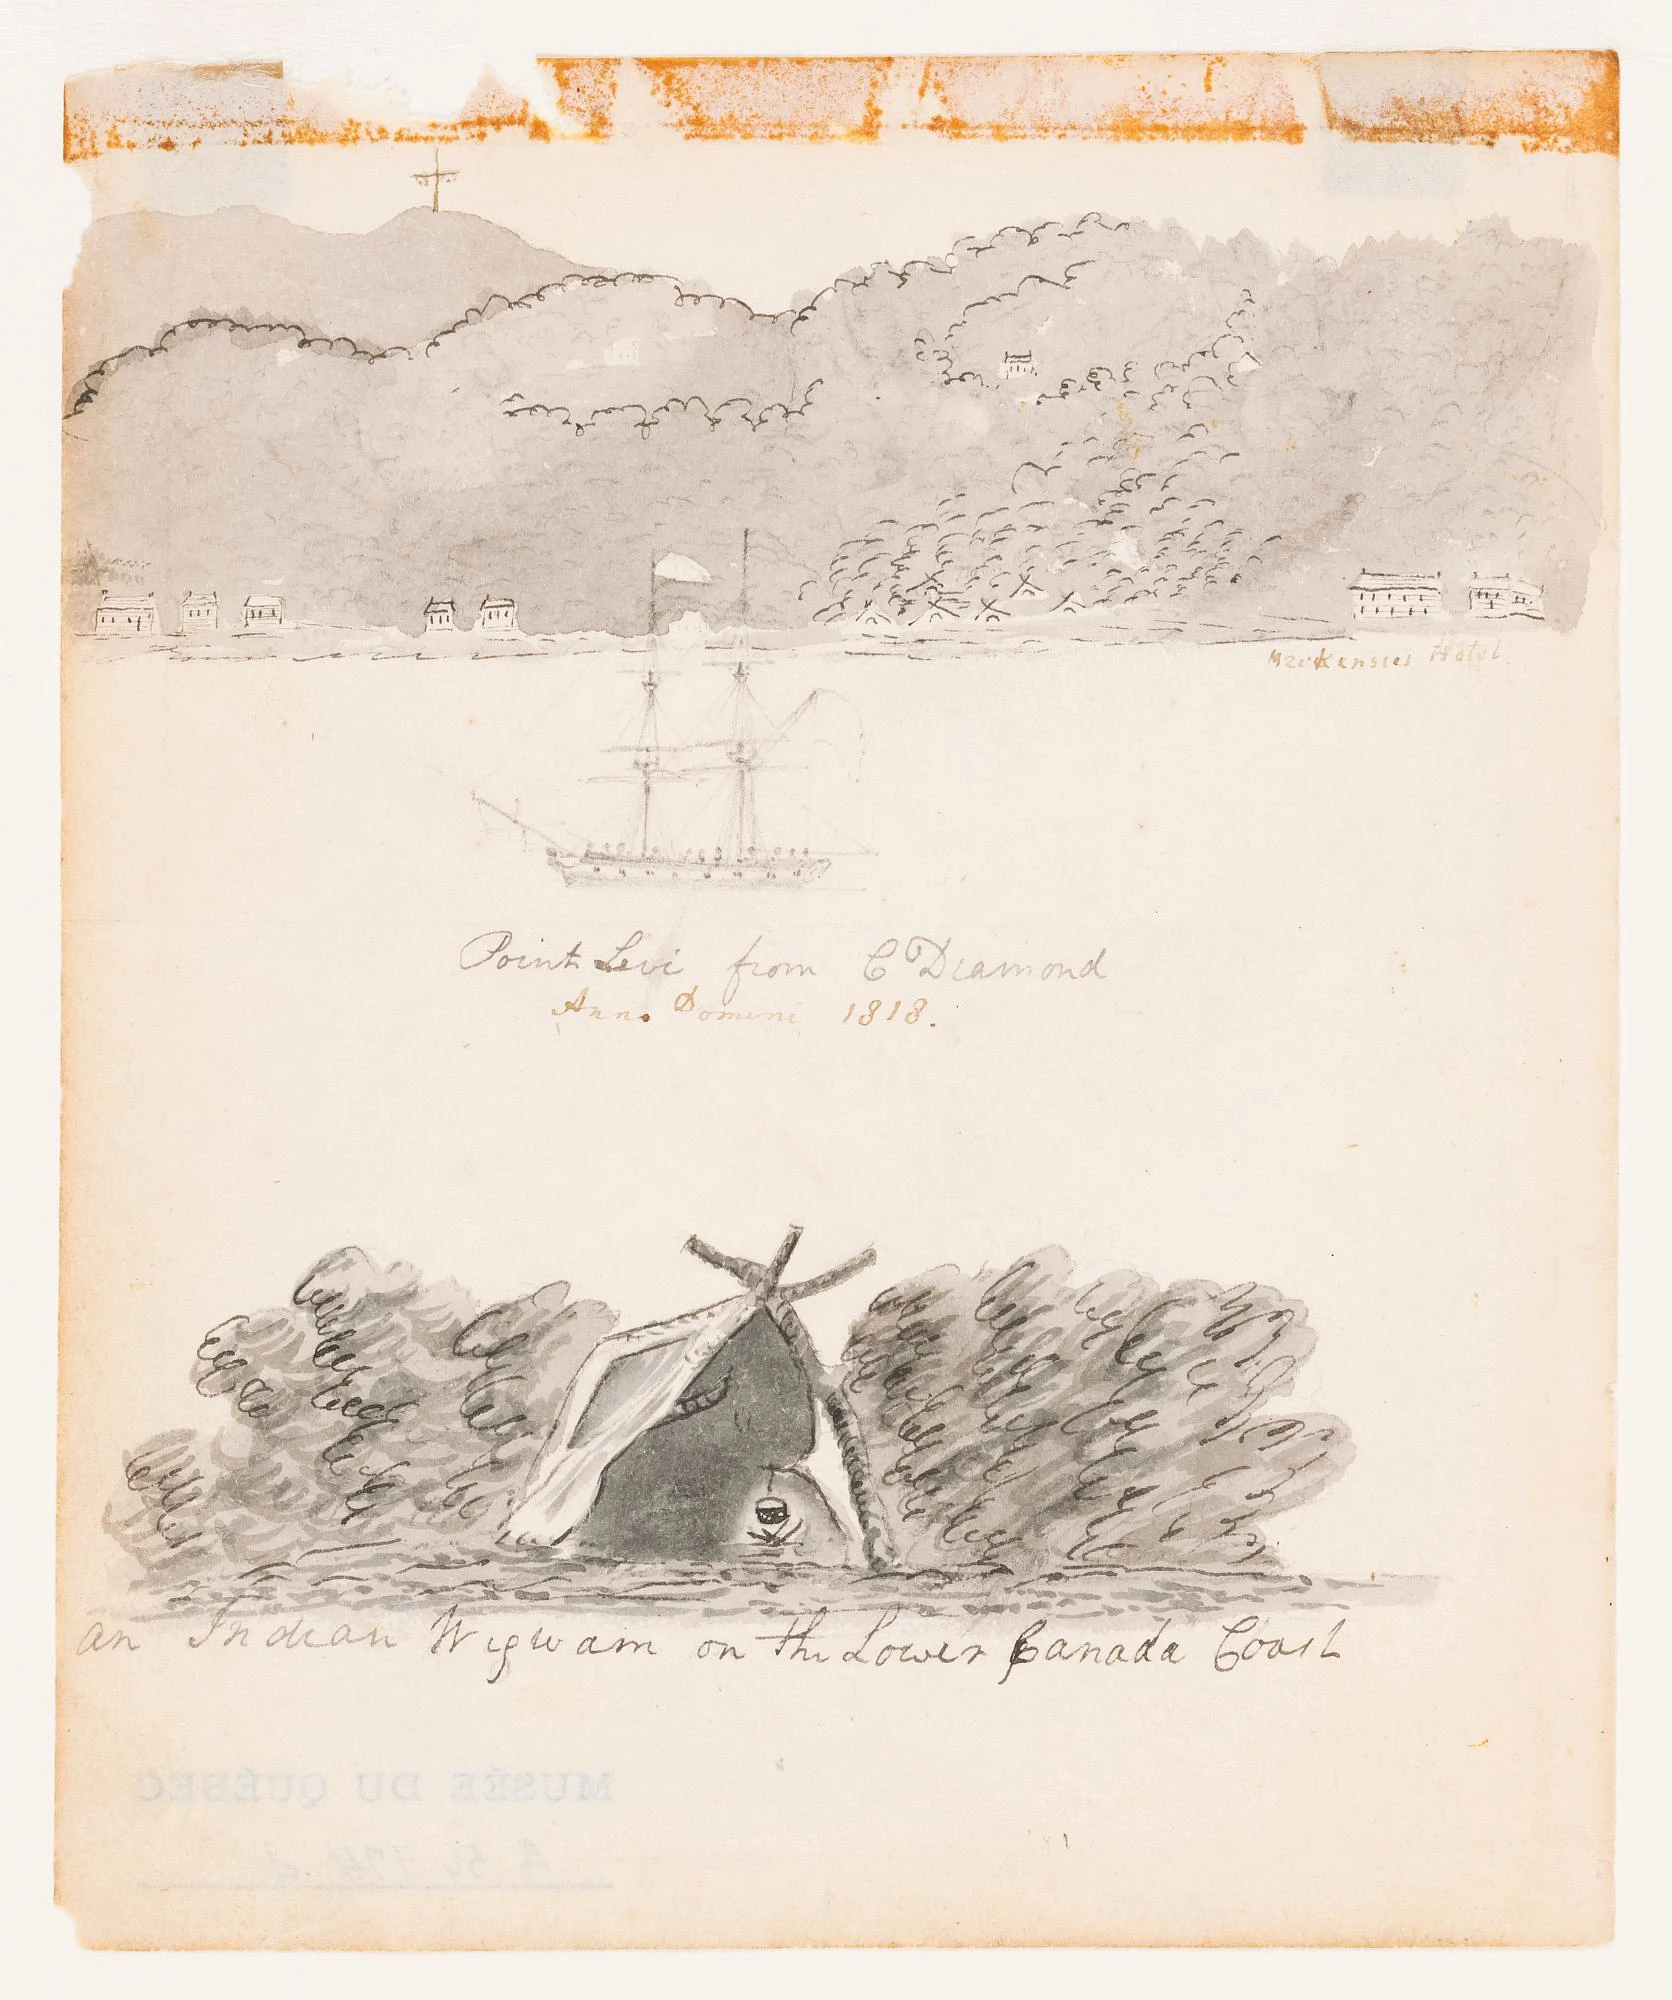 MacKensies Hotel.
Point Levi from C Diamond
Anno Domini 1818.
an Indian Wigwam on the Lower Canada Coast
MUSÉE DU QUÉBEC